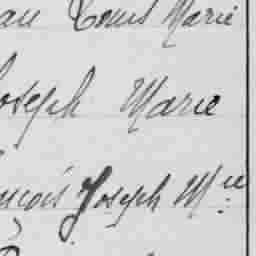 an Louis Marie
Joseph Marie
nçois Joseph Mie